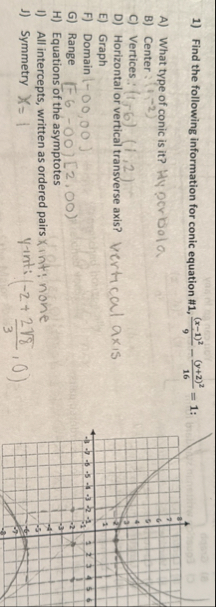 1) Find the following information for conic equation #1, (x−1)²/9 − (y+2)²/16 = 1:
A) What type of conic is it? Hyperbola
B) Center: (1,-2)
C) Vertices: (1,-6) (1,2)
D) Horizontal or vertical transverse axis? vertical axis
E) Graph
F) Domain (-∞,∞)
G) Range [-6,∞) [2,∞)
H) Equations of the asymptotes
I) All intercepts, written as ordered pairs x int: none
y int: (-2 + 2√8/3, 0)
J) Symmetry x = 1